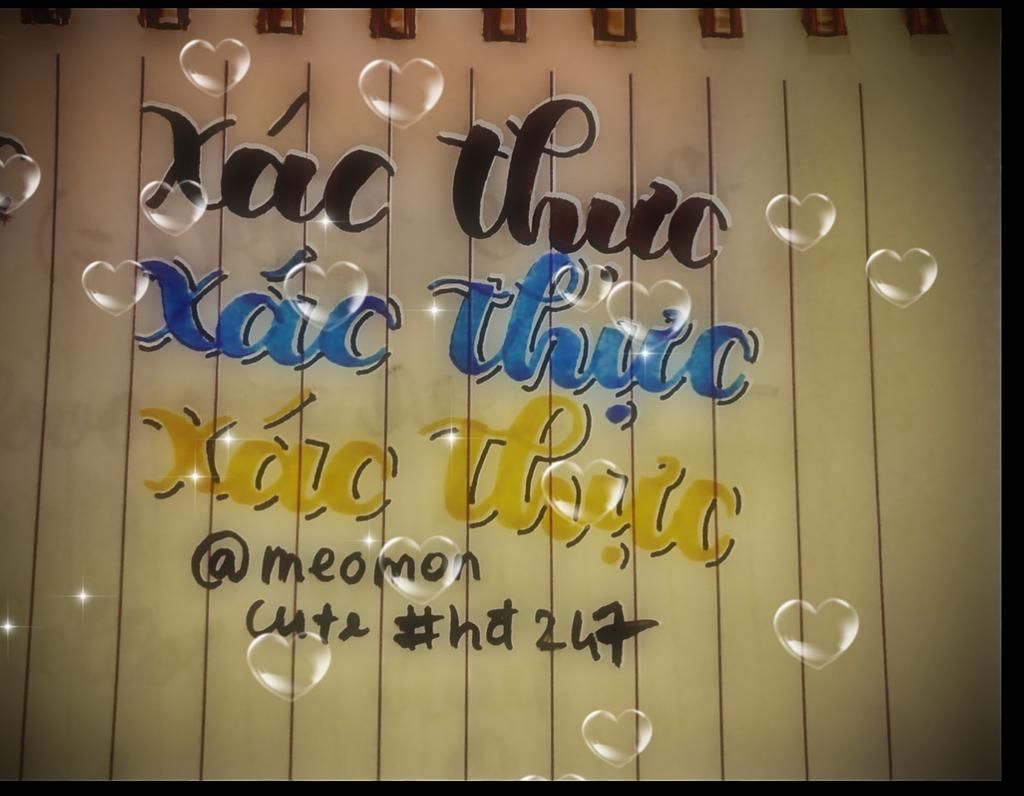 Xác thực
Xác thực
Xác thực
@meomon
cute #hđ 247